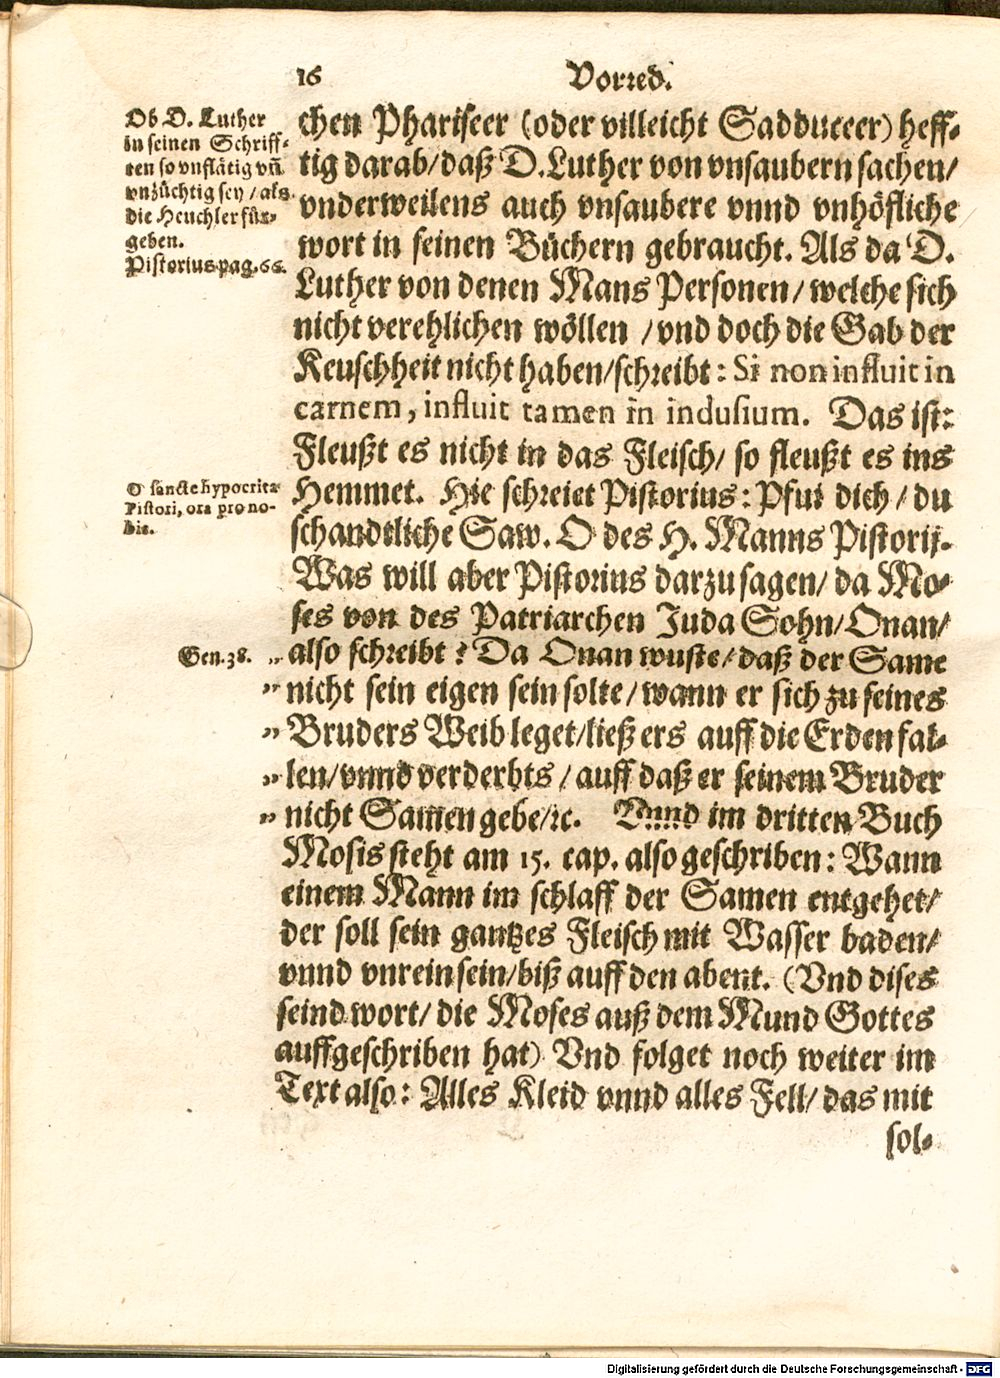 16
Vorred.
Ob D. Luther
in seinen Schriff-
ten so vnflätig vñ
vnzüchtig sey / als
die Heuchler für-
geben.
Pistorius pag. 66.
chen Phariseer (oder villeicht Sadduceer) heff-
tig darab/daß D.Luther von vnsaubern sachen/
vnderweilens auch vnsaubere vnnd vnhöfliche
wort in seinen Büchern gebraucht. Als da D.
Luther von denen Mans Personen/ welche sich
nicht verehlichen wöllen / vnd doch die Gab der
Keuschheit nicht haben/schreibt: Si non influit in
carnem, influit tamen in indusium. Das ist:
Fleußt es nicht in das Fleisch/ so fleußt es ins
O sancte hypocrita
Pistori, ora pro no-
bis.
Hemmet. Hie schreiet Pistorius: Pfui dich / du
schandtliche Saw. O des H. Manns Pistorij.
Was will aber Pistorius darzu sagen/ da Mo-
ses von des Patriarchen Juda Sohn/ Onan/
Gen. 38. „ also schreibt? Da Onan wuste/ daß der Same
„ nicht sein eigen sein solte/ wann er sich zu seines
„ Bruders Weib leget/ließ ers auff die Erden fal-
„ len/vnnd verderbts / auff daß er seinem Bruder
„ nicht Samen gebe/ꝛc. Vnnd im dritten Buch
Mosis steht am 15. cap. also geschriben: Wann
einem Mann im schlaff der Samen entgehet/
der soll sein gantzes Fleisch mit Wasser baden/
vnnd vnrein sein/biß auff den abent. (Vnd dises
seind wort/ die Moses auß dem Mund Gottes
auffgeschriben hat) Vnd folget noch weiter im
Text also: Alles Kleid vnnd alles Fell/ das mit
sol-
Digitalisierung gefördert durch die Deutsche Forschungsgemeinschaft - DFG